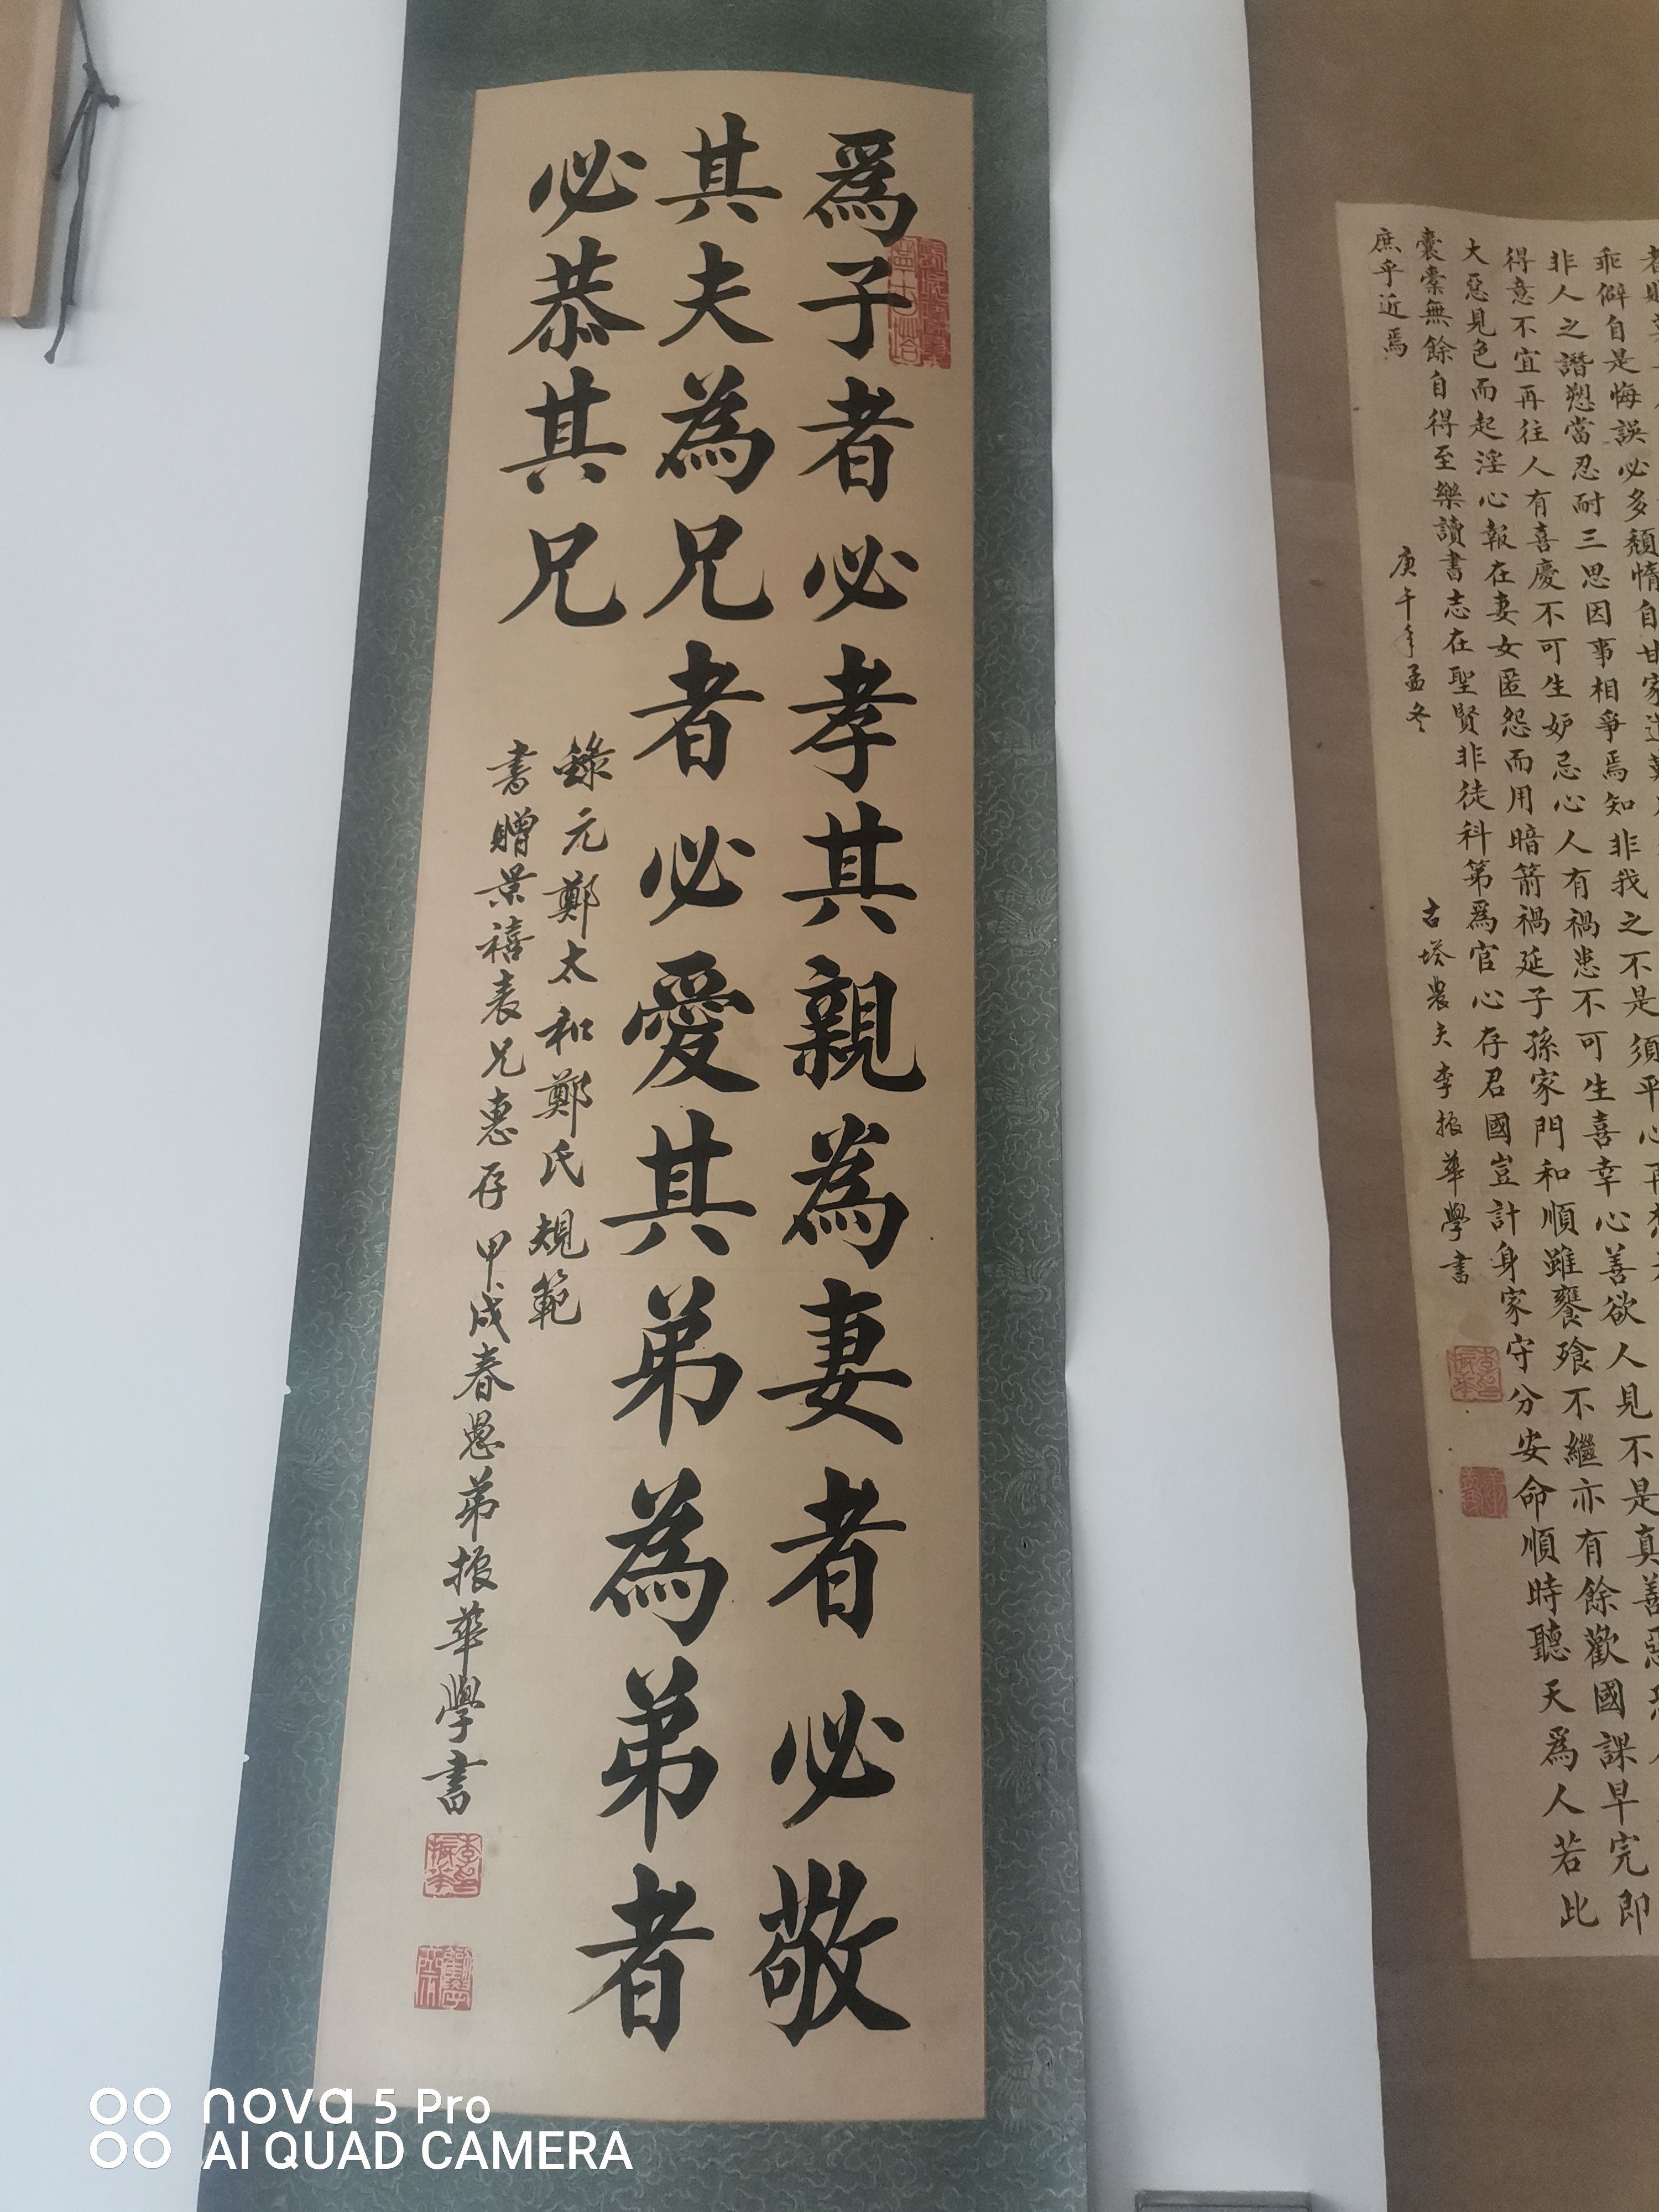 爲子者必孝其親為妻者必敬
其夫為兄者必愛其弟為弟者
必恭其兄
錄元鄭太和鄭氏規範
書贈景禧表兄惠存甲戌春愚弟振華學書
乖僻自是悔誤必多頹惰自甘家道
非人之譖愬當忍耐三思因事相爭焉知非我之不是須平心再
得意不宜再往人有喜慶不可生妒忌心人有禍患不可生喜幸心善欲人見不是真善惡
大惡見色而起淫心報在妻女匿怨而用暗箭禍延子孫家門和順雖饔飧不繼亦有餘歡國課早完即
囊橐無餘自得至樂讀書志在聖賢非徒科第爲官心存君國豈計身家守分安命順時聽天爲人若此
庶乎近焉
庚午年孟冬
古塔農夫李振華學書
nova 5 Pro
AI QUAD CAMERA